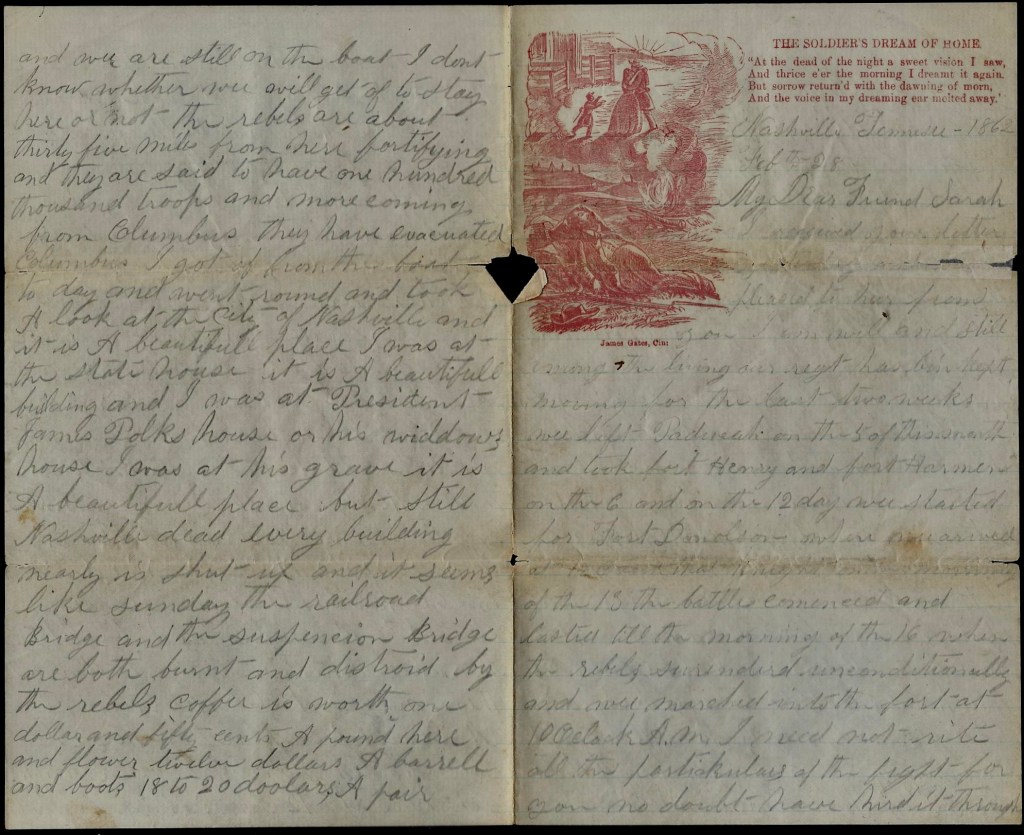 and wee are still on the boat I dont
know whether wee will get of to stay
here or not the rebels are about
thirty five miles from here fortifying
and they are said to have one hundred
thousand troops and more coming
from Columbus they have evacuated
Columbus I got of from the boat
to day and went round and took
A look at the City of Nashville and
it is A beautifull place I was at
the state house it is A beautifull
building and I was at President
James Polks house or his widdows
house I was at his grave it is
A beautifull place but still
Nashville dead every building
nearly is shut up and it seems
like sunday the railroad
Bridge and the suspencion Bridge
are both burnt and distroid by
the rebels coffee is worth one
dollar and fifty cents A pound here
and flower twelve dollars A barrell
and boots 18 to 20 doolars A pair
THE SOLDIER'S DREAM OF HOME.
"At the dead of the night a sweet vision I saw,
And thrice e'er the morning I dreamt it again.
But sorrow return'd with the dawning of morn,
And the voice in my dreaming ear melted away.'
Nashville Tennesee - 1862
Feb th 28
My Dear Friend Sarah
I received your letter
pleased to hear from
you I am well and still
among the living our regt has bin kept
moving for the last two weeks
wee left Paducah on the 5 of this month
and took fort Henry and fort Harmen
on the 6 and on the 12 day wee started
for Fort Donolson where wee arived
at 12
of the 13 the battle comenced and
lasted till the morning of the 16 when
the rebels surenderd unconditionally
and wee marched into the fort at
10 Oclock A.M. I need not rite
all the partickulars of the fight for
you no doubt have hird it through
James Gates, Cin: